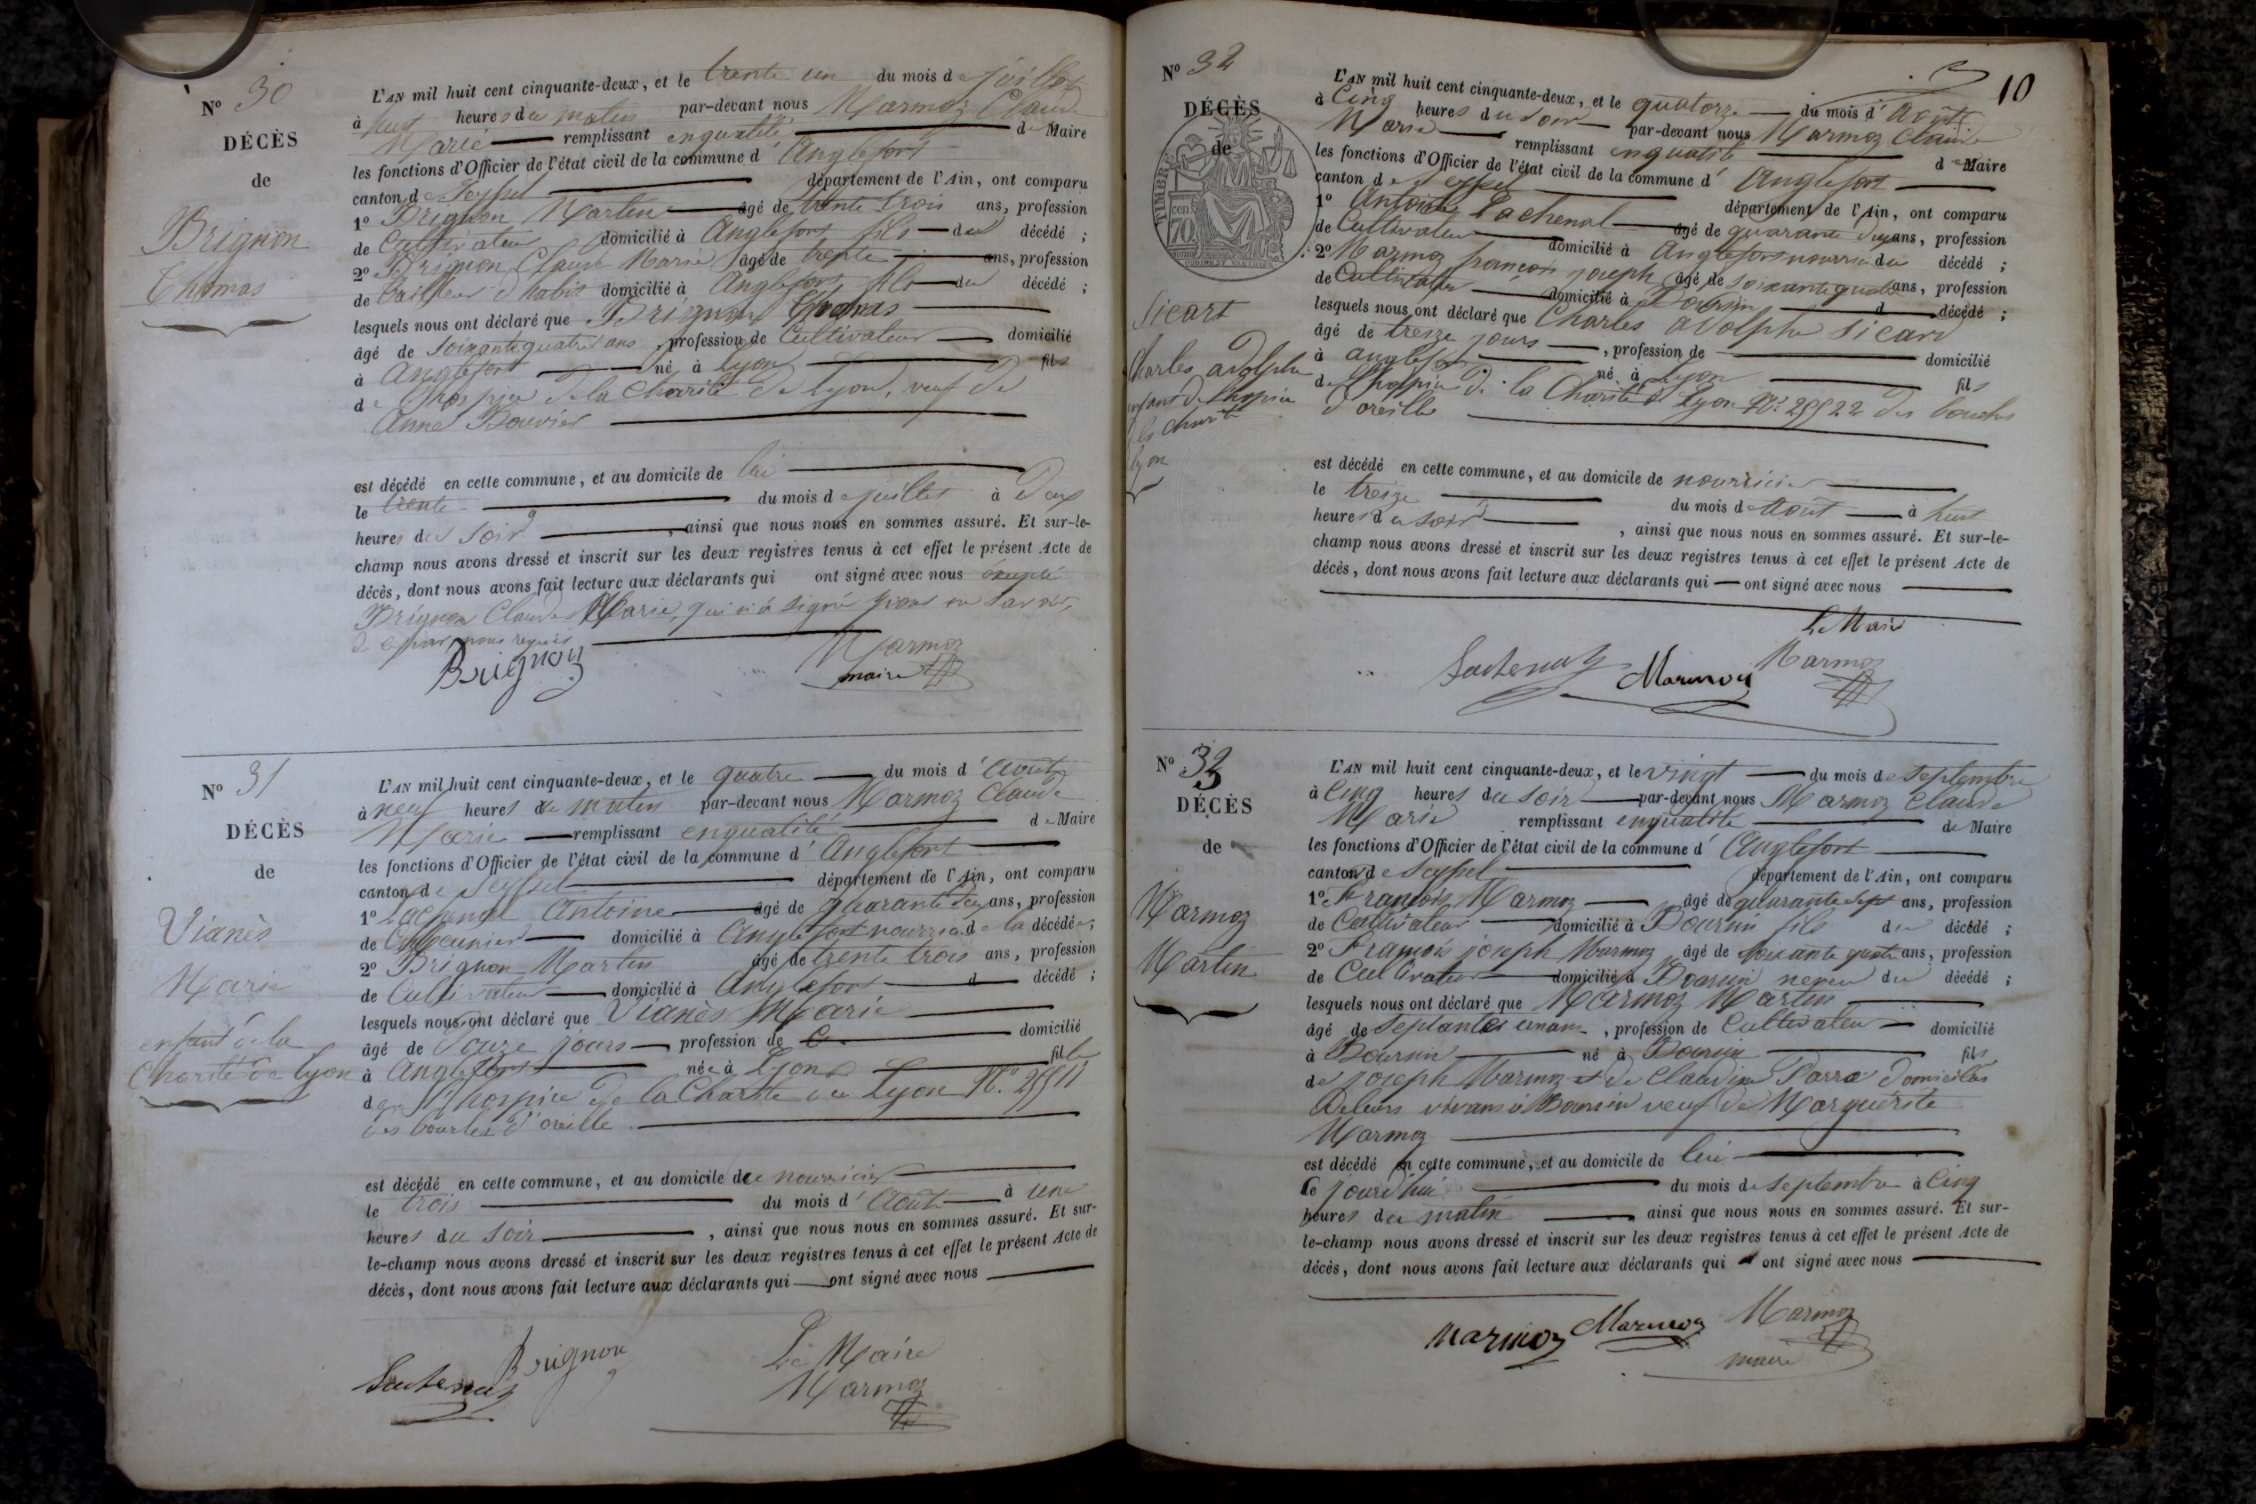 N° 30
DÉCÈS
de
Brignon
Thomas
L'AN mil huit cent cinquante-deux, et le trente un du mois de juillet
à huit heures du matin par-devant nous Marmoz Claude
Marie remplissant en qualité de Maire
les fonctions d'Officier de l'état civil de la commune d'Anglefort
canton de Seyssel département de l'Ain, ont comparu
1° Brignon Martin âgé de trente trois ans, profession
de Cultivateur domicilié à Anglefort fils du décédé ;
2° Brignon Claude Marie âgé de trente ans, profession
de tailleur d'habits domicilié à Anglefort fils du décédé ;
lesquels nous ont déclaré que Brignon Thomas
âgé de soixante quatre ans, profession de Cultivateur domicilié
à Anglefort né à Lyon fils
de l'hospice de la Charité de Lyon, veuf de
Anne Bouvier
est décédé en cette commune, et au domicile de lui
le trente du mois de juillet à deux
heures du soir, ainsi que nous nous en sommes assuré. Et sur-le-
champ nous avons dressé et inscrit sur les deux registres tenus à cet effet le présent Acte de
décès, dont nous avons fait lecture aux déclarants qui ont signé avec nous excepté
Brignon Claude Marie, qui n'a signé pour ne savoir,
de ce par nous requis
Brignon
Marmoz
maire
N° 31
DÉCÈS
de
Vianès
Marie
enfant de la
Charité de Lyon
L'AN mil huit cent cinquante-deux, et le quatre du mois d'Août
à neuf heures du matin par-devant nous Marmoz Claude
Marie remplissant en qualité de Maire
les fonctions d'Officier de l'état civil de la commune d'Anglefort
canton de Seyssel département de l'Ain, ont comparu
1° Lachenal Antoine âgé de quarante ans, profession
de domicilié à Anglefort nourricier de la décédée ;
2° Brignon Martin âgé de trente trois ans, profession
de Cultivateur domicilié à Anglefort d décédé ;
lesquels nous ont déclaré que Vianès Marie
âgé de douze jours profession de domicilié
à Anglefort née à Lyon fille
de l'hospice de la Charité de Lyon N°. 25511
des boucles d'oreille
est décédé en cette commune, et au domicile de nourricier
le trois du mois d'Août à une
heures du soir, ainsi que nous nous en sommes assuré. Et sur-
le-champ nous avons dressé et inscrit sur les deux registres tenus à cet effet le présent Acte de
décès, dont nous avons fait lecture aux déclarants qui ont signé avec nous
Brignon
Le Maire
Marmoz
10
N° 32
DÉCÈS
de
TIMBRE
70
Sicart
Charles adolphe
enfant de l'hospice
de la charité
Lyon
L'AN mil huit cent cinquante-deux, et le quatorze du mois d'Août
à Cinq heures du soir par-devant nous Marmoz Claude
Marie remplissant en qualité de Maire
les fonctions d'Officier de l'état civil de la commune d'Anglefort
canton de Seyssel département de l'Ain, ont comparu
1° Antoine Lachenal âgé de quarante ans, profession
de Cultivateur domicilié à Anglefort nourricier du décédé ;
2° Marmoz françois joseph âgé de soixante quatre ans, profession
de Cultivateur domicilié à Boursin d décédé ;
lesquels nous ont déclaré que Charles adolphe Sicard
âgé de treize jours, profession de domicilié
à Anglefort né à Lyon fils
de l'hospice de la Charité de Lyon N°. 25522 des boucles
d'oreille
est décédé en cette commune, et au domicile de nourricier
le treize du mois d'Août à huit
heures du soir, ainsi que nous nous en sommes assuré. Et sur-le-
champ nous avons dressé et inscrit sur les deux registres tenus à cet effet le présent Acte de
décès, dont nous avons fait lecture aux déclarants qui ont signé avec nous
Le Maire
Marmoz Marmoz
N° 33
DÉCÈS
de
Marmoz
Martin
L'AN mil huit cent cinquante-deux, et le vingt du mois de septembre
à Cinq heures du soir par-devant nous Marmoz Claude
Marie remplissant en qualité de Maire
les fonctions d'Officier de l'état civil de la commune d'Anglefort
canton de Seyssel département de l'Ain, ont comparu
1° François Marmoz âgé de quarante sept ans, profession
de Cultivateur domicilié à Boursin fils du décédé ;
2° François joseph Marmoz âgé de soixante quatre ans, profession
de Cultivateur domicilié à Boursin neveu du décédé ;
lesquels nous ont déclaré que Marmoz Martin
âgé de septante un ans, profession de Cultivateur domicilié
à Boursin né à Boursin fils
de joseph Marmoz et de Claudine Parra domiciliés
de leurs vivans à Boursin veuf de Marguerite
Marmoz
est décédé en cette commune, et au domicile de lui
le jourd'hui du mois de septembre à Cinq
heures du matin ainsi que nous nous en sommes assuré. Et sur-
le-champ nous avons dressé et inscrit sur les deux registres tenus à cet effet le présent Acte de
décès, dont nous avons fait lecture aux déclarants qui ont signé avec nous
Marmoz Marmoz Marmoz
maire